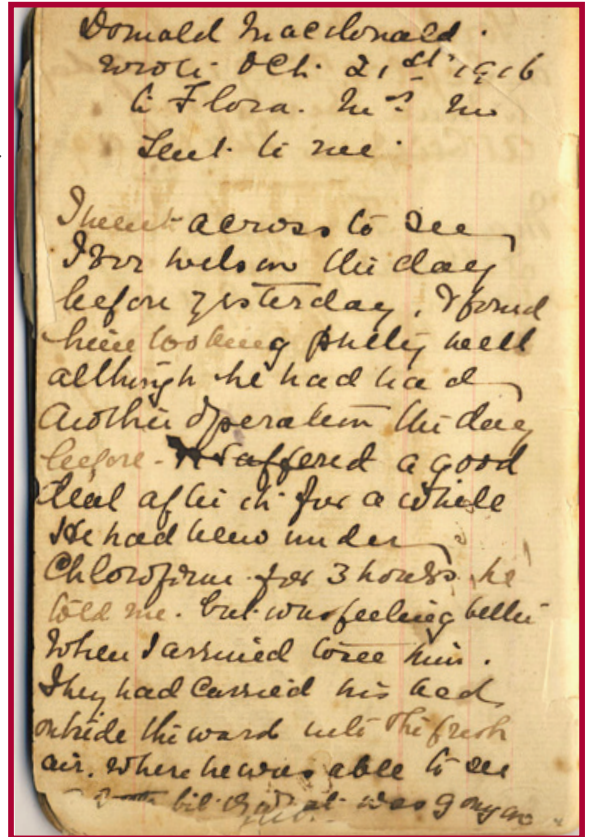 Donald Macdonald.
wrote Oct. 21st 1916
to Flora. Mrs Mc
Sent to me.
I went across to see
Ivor Wilson the day
before yesterday, & found
him looking pretty well
although he had had
another operation the day
before - suffered a good
deal after it for a while
He had been under
Chloroform for 3 hours he
told me. but was feeling better
When I arrived to see him.
They had carried his bed
outside the ward into the fresh
air. where he was able to see
bit of what was going on